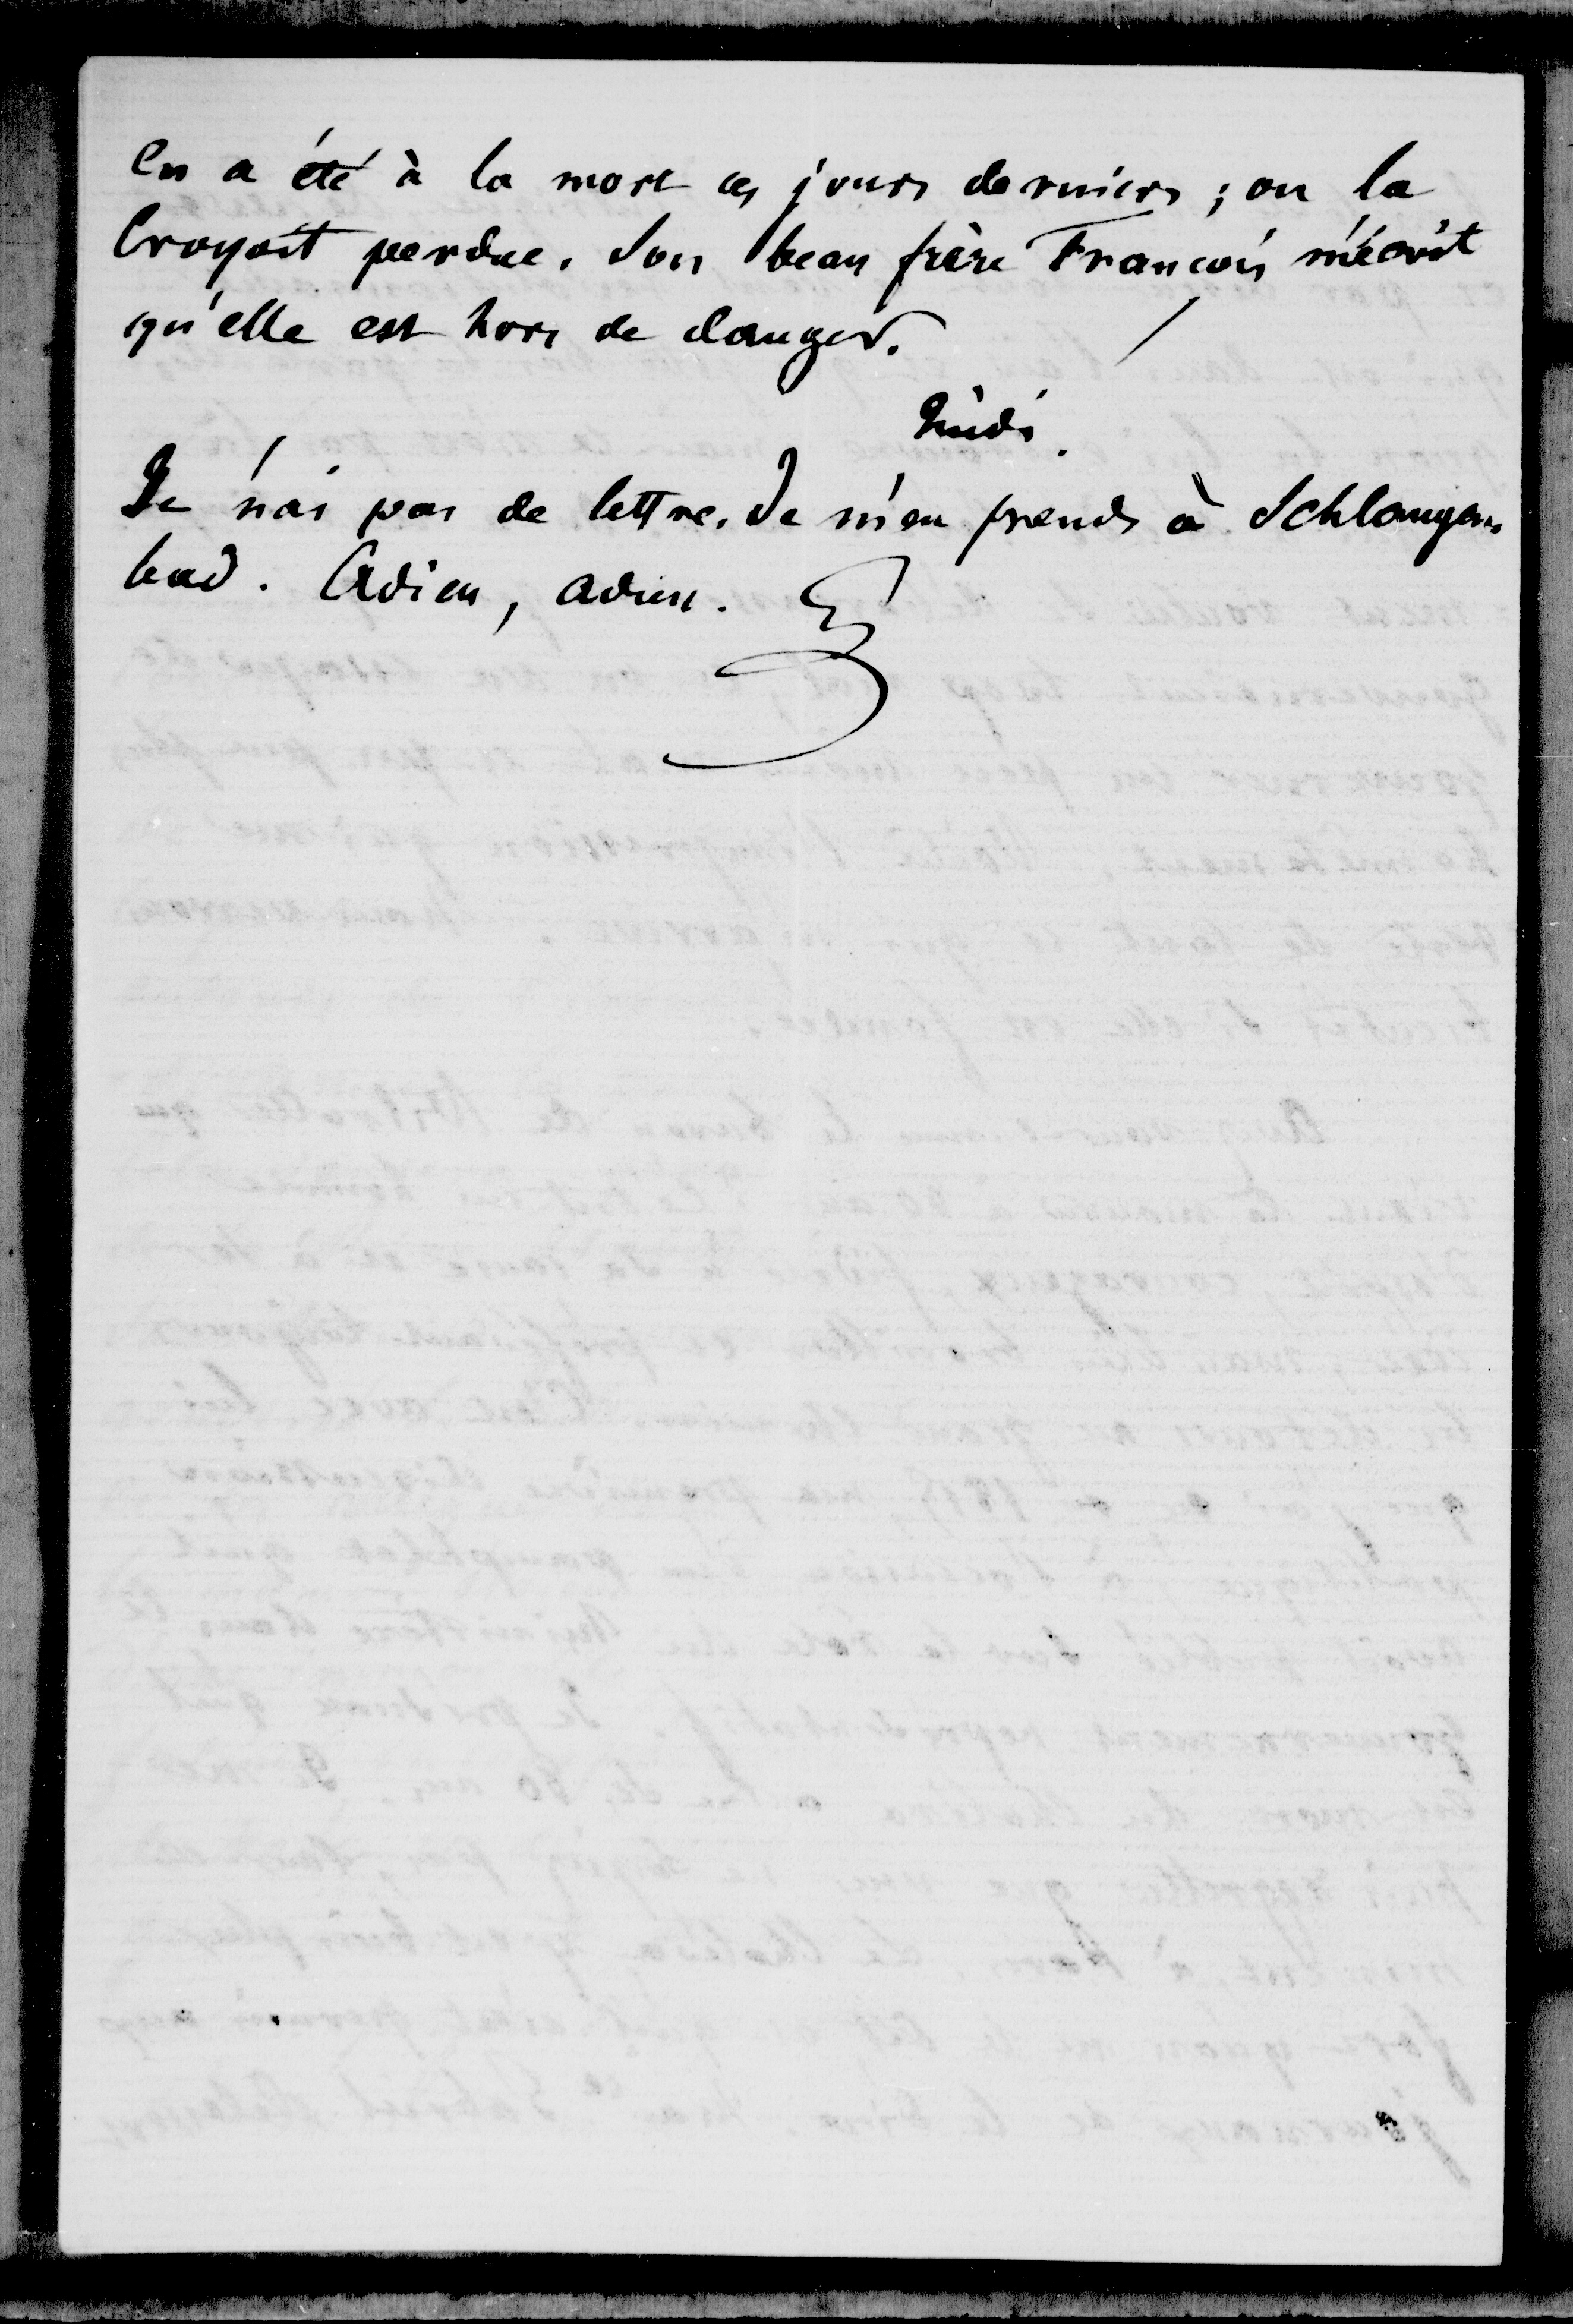 en a été à la mort ces jours derniers ; on la
croyoit perdue. Son beau frère François m'écrit
qu'elle est hors de danger.
Midi.
Je n'ai pas de lettre. Je m'en prends à Schlangen
bad. Adieu, adieu.